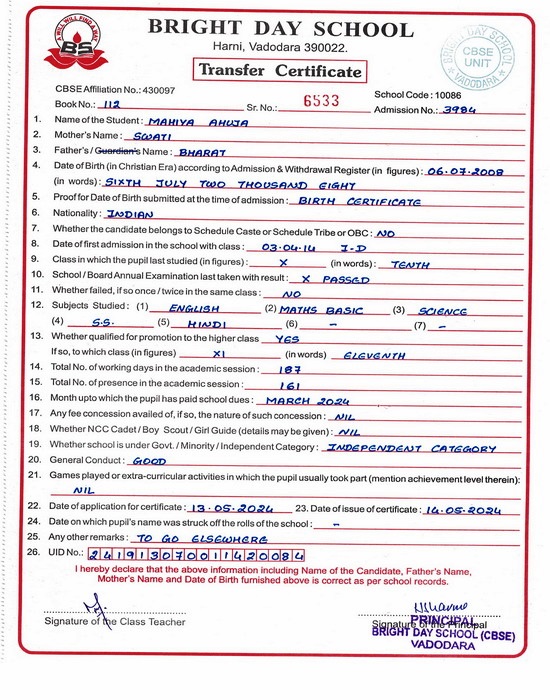 A WILL WILL FIND A WAY
BS
BRIGHT DAY SCHOOL
Harni, Vadodara 390022.
Transfer Certificate
BRIGHT DAY SCHOOL
CBSE
UNIT
VADODARA
CBSE Affiliation No.: 430097 School Code : 10086
Book No.: 112 Sr. No.: 6533 Admission No.: 3984
1. Name of the Student : MAHIYA AHUJA
2. Mother's Name : SWATI
3. Father's / Guardian's Name : BHARAT
4. Date of Birth (in Christian Era) according to Admission & Withdrawal Register (in figures) : 06.07.2008
(in words) : SIXTH JULY TWO THOUSAND EIGHT
5. Proof for Date of Birth submitted at the time of admission : BIRTH CERTIFICATE
6. Nationality : INDIAN
7. Whether the candidate belongs to Schedule Caste or Schedule Tribe or OBC : NO
8. Date of first admission in the school with class : 03.04.14 I-D
9. Class in which the pupil last studied (in figures) : X (in words) : TENTH
10. School / Board Annual Examination last taken with result : X PASSED
11. Whether failed, if so once / twice in the same class : NO
12. Subjects Studied : (1) ENGLISH (2) MATHS BASIC (3) SCIENCE
(4) S.S. (5) HINDI (6) - (7) -
13. Whether qualified for promotion to the higher class YES
If so, to which class (in figures) XI (in words) ELEVENTH
14. Total No. of working days in the academic session : 187
15. Total No. of presence in the academic session : 161
16. Month upto which the pupil has paid school dues : MARCH 2024
17. Any fee concession availed of, if so, the nature of such concession : NIL
18. Whether NCC Cadet / Boy Scout / Girl Guide (details may be given) : NIL
19. Whether school is under Govt. / Minority / Independent Category : INDEPENDENT CATEGORY
20. General Conduct : GOOD
21. Games played or extra-curricular activities in which the pupil usually took part (mention achievement level therein) :
NIL
22. Date of application for certificate : 13.05.2024 23. Date of issue of certificate : 14.05.2024
24. Date on which pupil's name was struck off the rolls of the school : -
25. Any other remarks : TO GO ELSEWHERE
26. UID No.: 241913070011420084
I hereby declare that the above information including Name of the Candidate, Father's Name,
Mother's Name and Date of Birth furnished above is correct as per school records.
Signature of the Class Teacher Signature of the Principal
PRINCIPAL
BRIGHT DAY SCHOOL (CBSE)
VADODARA